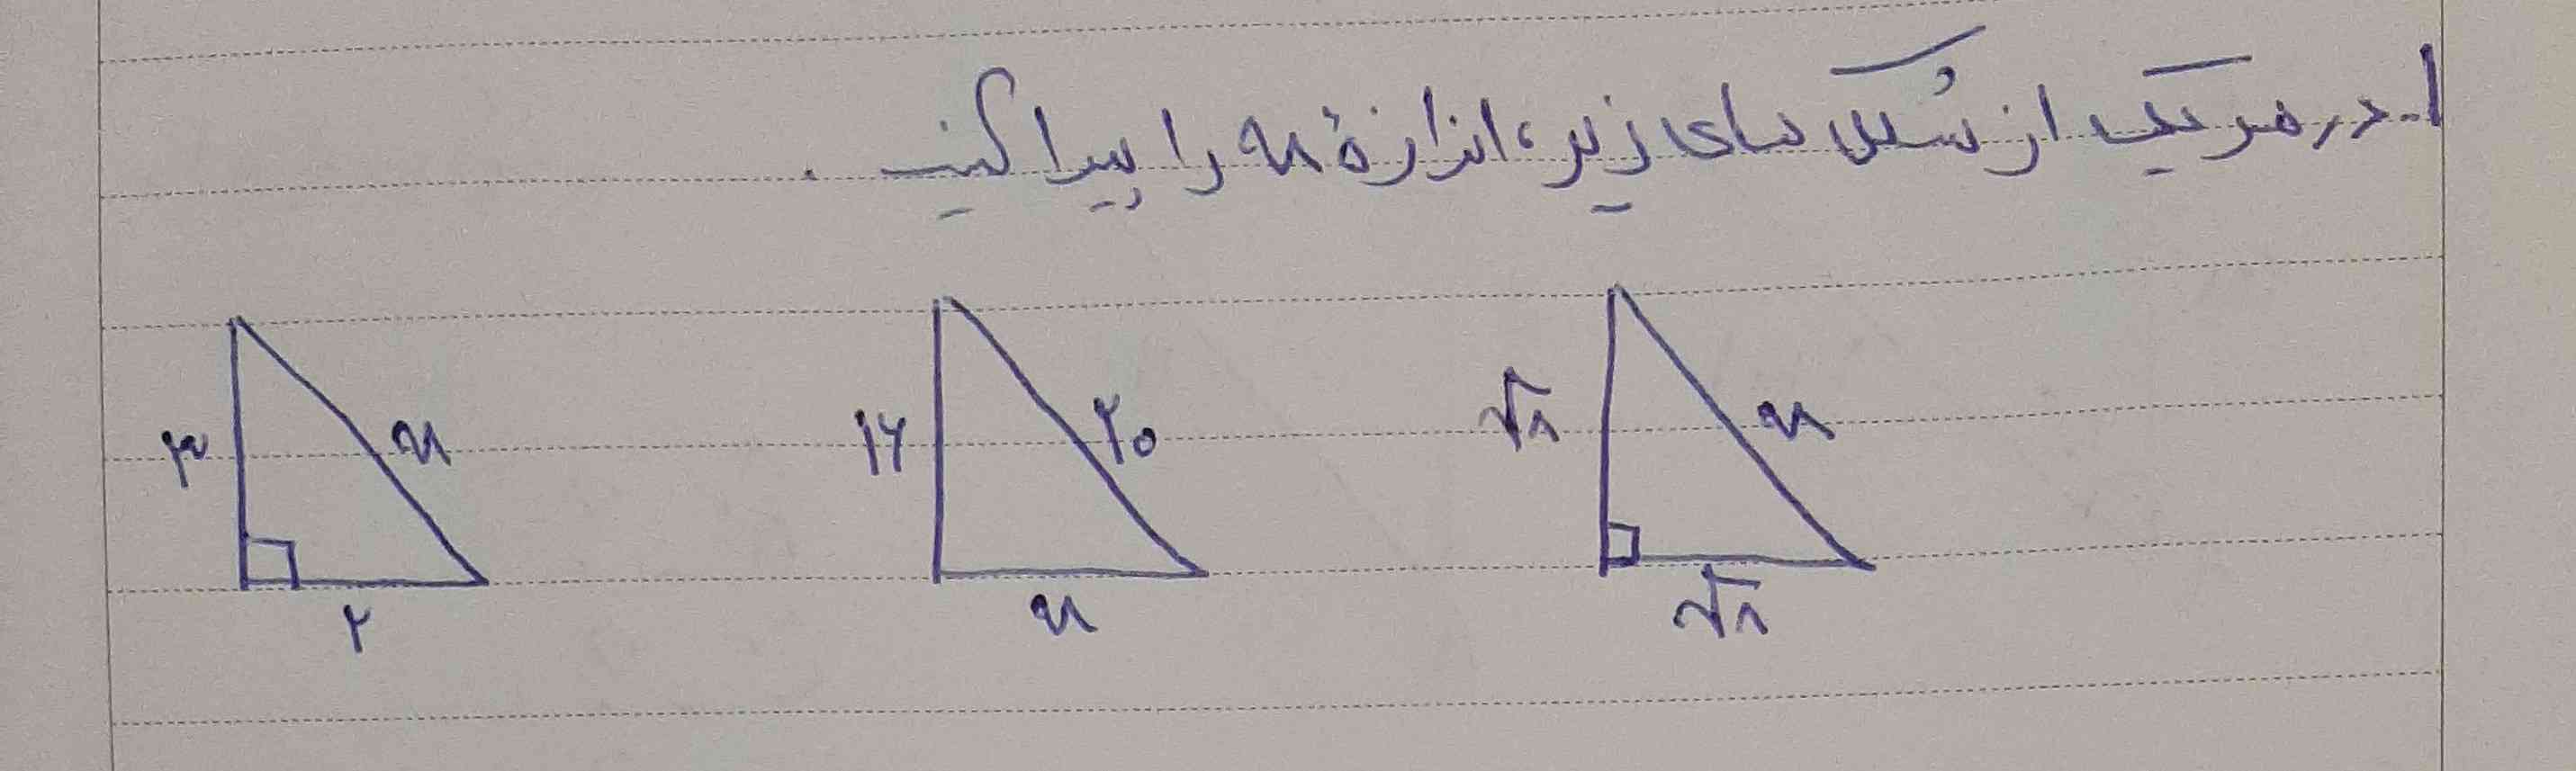 ۱- در هر یک از شکل های زیر، اندازهٔ x را پیدا کنید.
√۸ x ۲۰ ۱۶ x ۳
√۸ x ۲